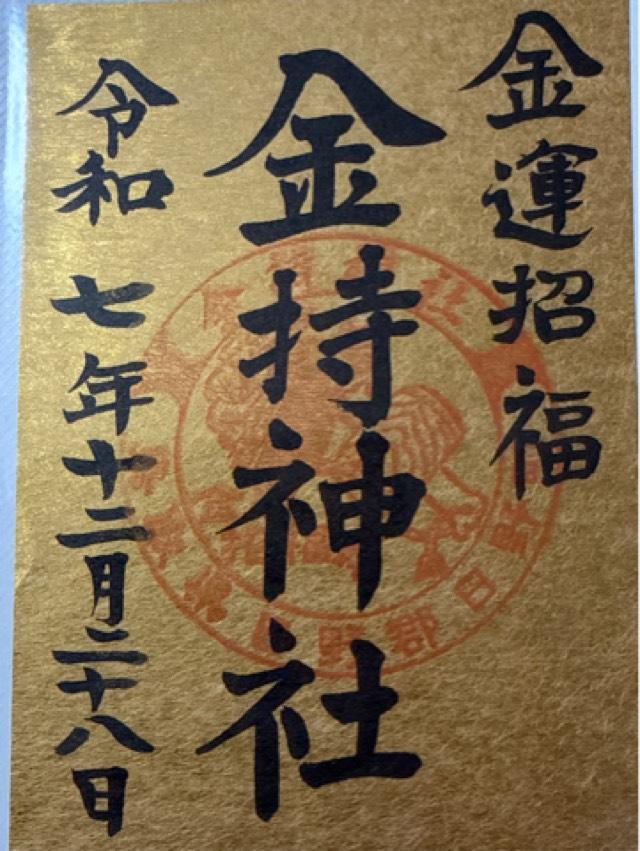 金運招福
金持神社
令和七年十二月二十八日